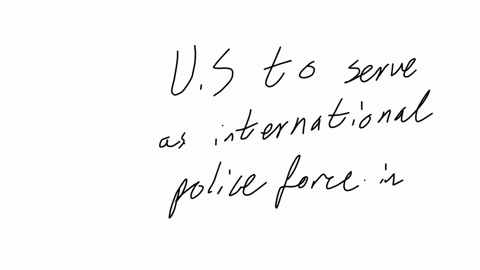 U.S to serve
as international
police force. in